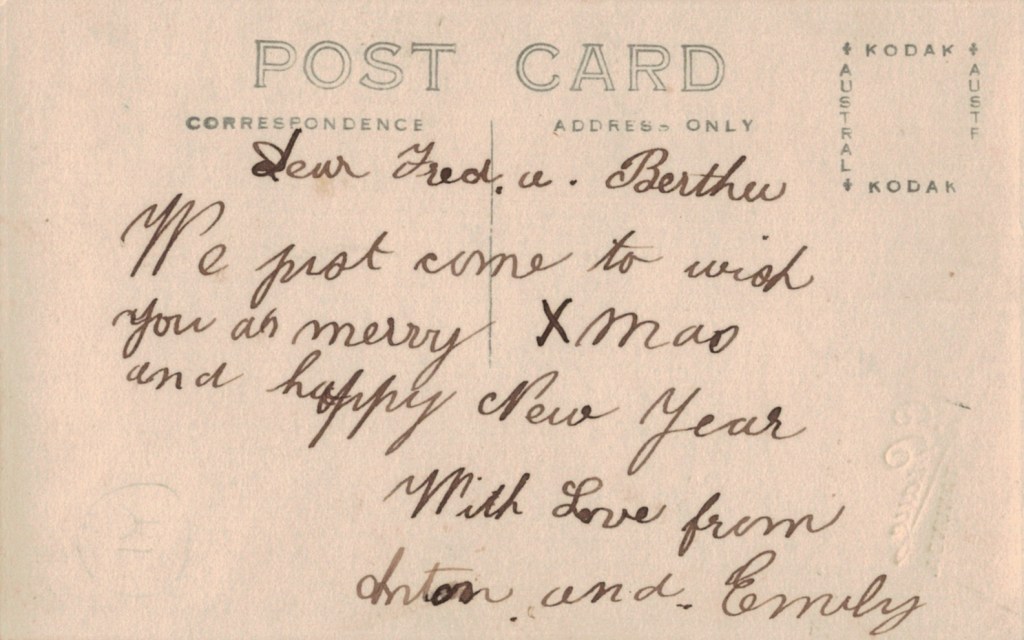 POST CARD
CORRESPONDENCE ADDRESS ONLY
KODAK
AUSTRAL
AUSTR
KODAK
Dear Fred. a. Bertha
We just come to wish
you as merry Xmas
and happy New Year
With Love from
Anton. and. Emily